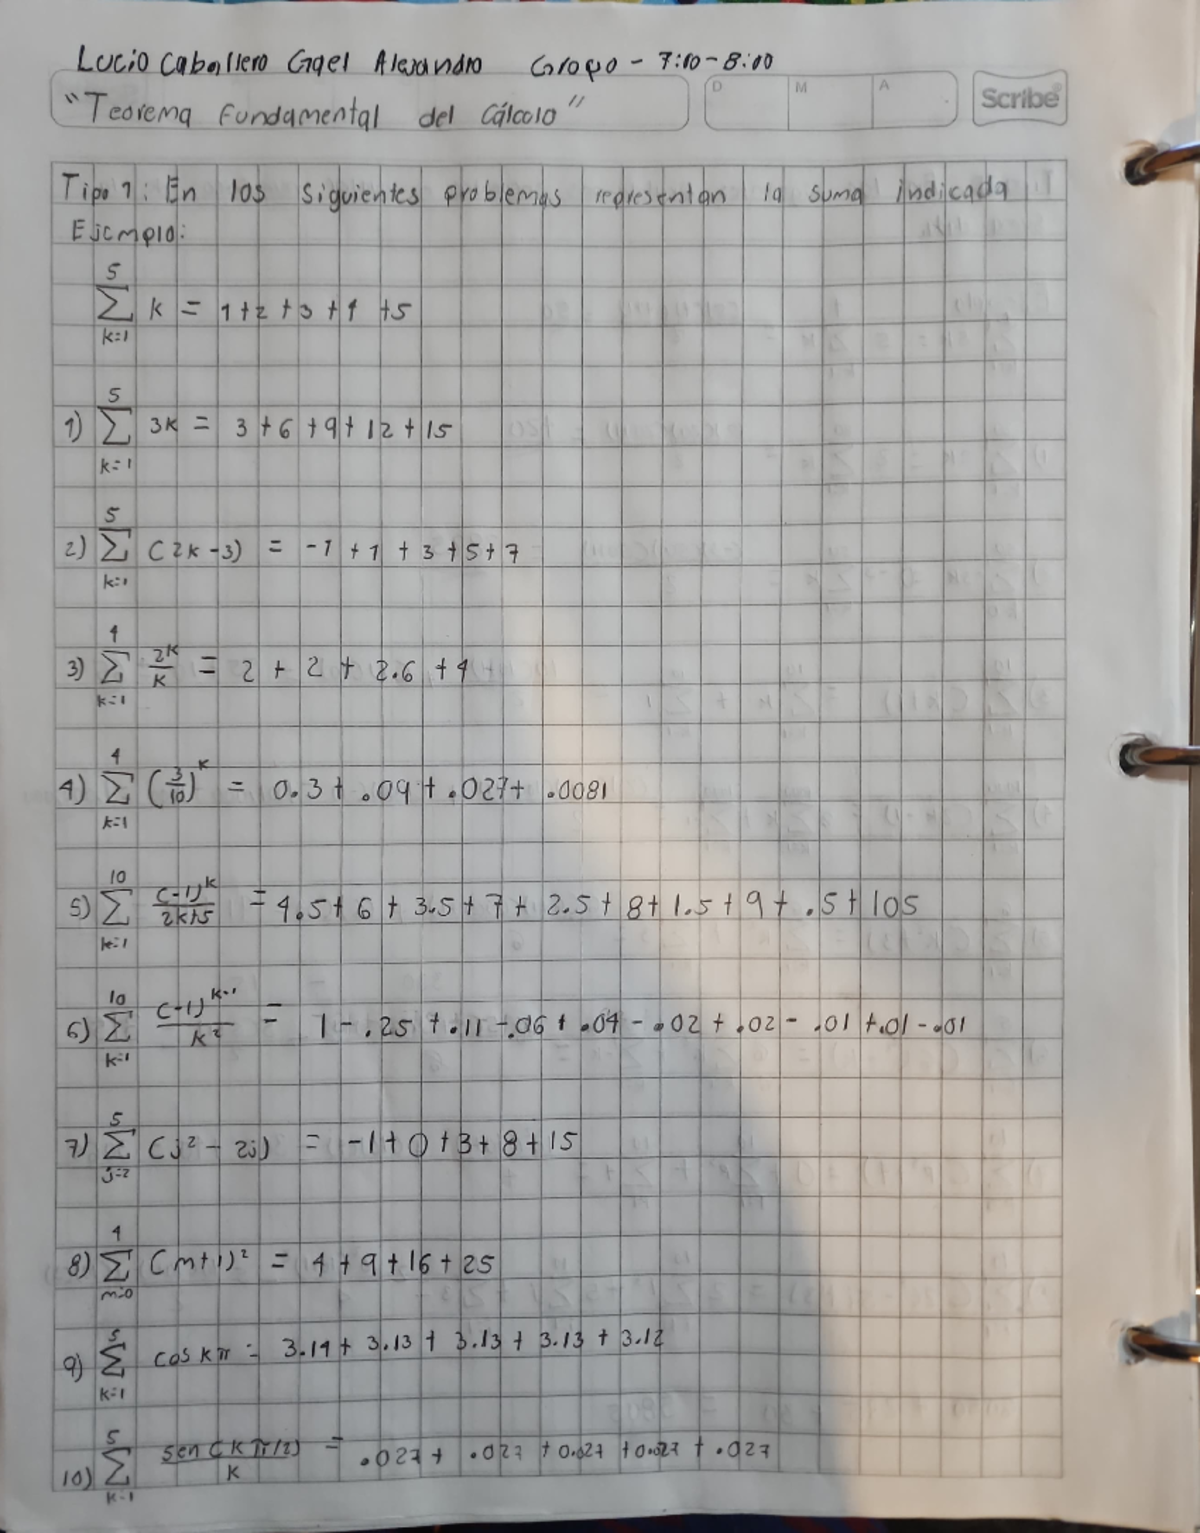 Lucio Caballero Gael Alejandro Grupo - 7:10-8:00
"Teorema Fundamental del Cálculo"
D M A
Scribe
Tipo 1: En los siguientes problemas representan la suma indicada
Ejemplo:
5
∑ k = 1+2+3+4+5
k=1
5
1) ∑ 3k = 3+6+9+12+15
k=1
5
2) ∑ (2k-3) = -1+1+3+5+7
k=1
4
3) ∑ 2^k/k = 2+2+2.6+4
k=1
4
4) ∑ (3/10)^k = 0.3+.09+.027+.0081
k=1
10
5) ∑ (-1)^k/2k+5 = 4.5+6+3.5+7+2.5+8+1.5+9+.5+105
k=1
10
6) ∑ (-1)^k-1/k² = 1-.25+.11-.06+.04-.02+.02-.01+.01-.01
k=1
5
7) ∑ (j²-2j) = -1+0+3+8+15
j=2
4
8) ∑ (m+1)² = 4+9+16+25
m=0
5
9) ∑ cos kπ = 3.14+3.13+3.13+3.13+3.12
k=1
5
10) ∑ sen(kπ/2)/k = .027+.027+0.027+0.027+.027
k=1